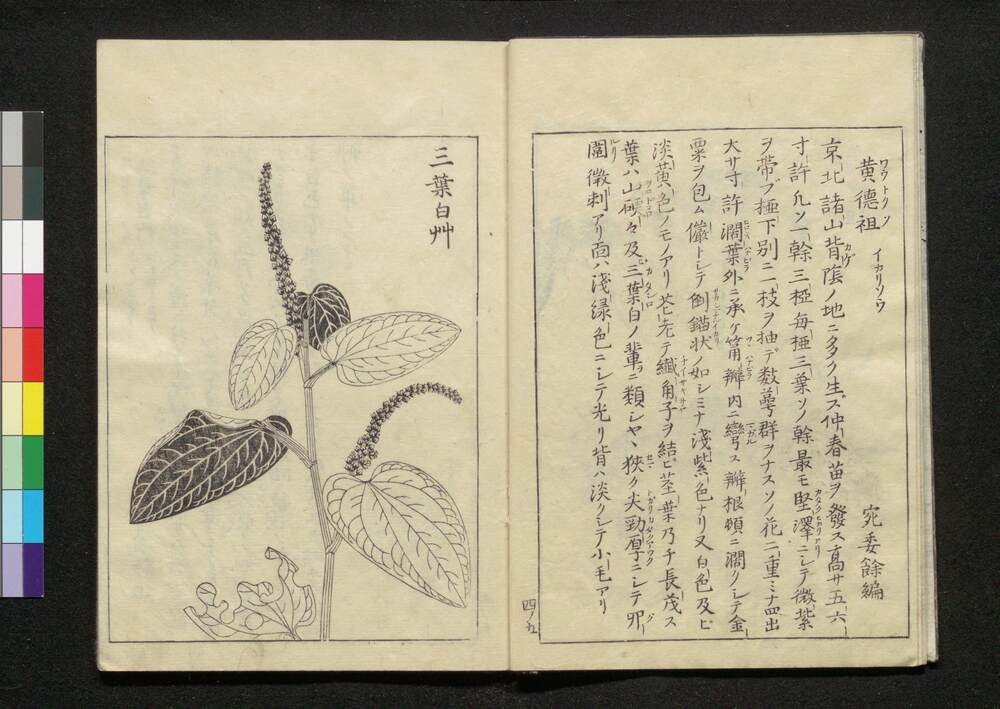 黄德祖 イカリソウ 宛委餘編
京北諸山背陰ノ地ニ多ク生ズ仲春苗ヲ發ス高サ五六
寸許凡ソ一幹三椏每椏三葉ソノ幹最モ堅澤ニシテ微紫
ヲ帶ブ椏下別ニ一枝ヲ抽デ数萼群ヲナスソノ花二重ミナ四出
大サ寸許濶葉外ニ承ケ筩瓣内ニ彎ス瓣根頓ニ濶クシテ金
粟ヲ包ム儼トシテ倒錨狀ノ如シミナ淺紫色ナリ又白色及ビ
淡黄色ノモノアリ花老テ纎角子ヲ結ビ莖葉乃チ長茂ス
葉ハ山礬々及三葉白ノ輩ニ類シヤヽ狹ク尖勁厚ニシテ卵
闊微刺アリ面ハ淺綠色ニシテ光リ背ハ淡クシテ小毛アリ
四ノ九
三葉白艸